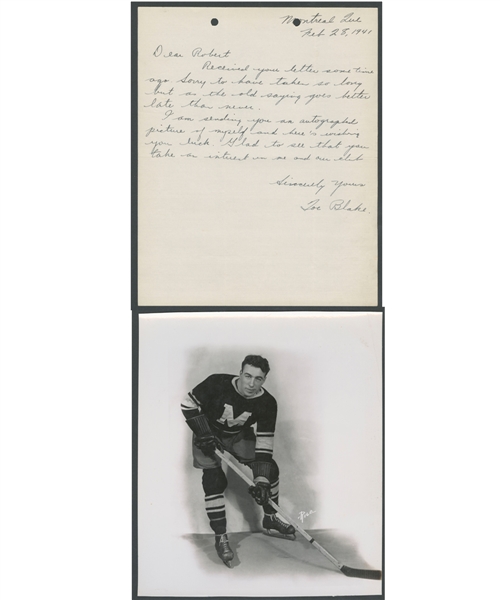 Montreal Que
Feb 28, 1941
Dear Robert
Received your letter some time
ago sorry to have taken so long
but as the old saying goes better
late than never.
I am sending you an autographed
picture of myself and here is wishing
you luck. Glad to see that you
take an interest in me and our club
Sincerely Yours
Toe Blake.
M
Rice